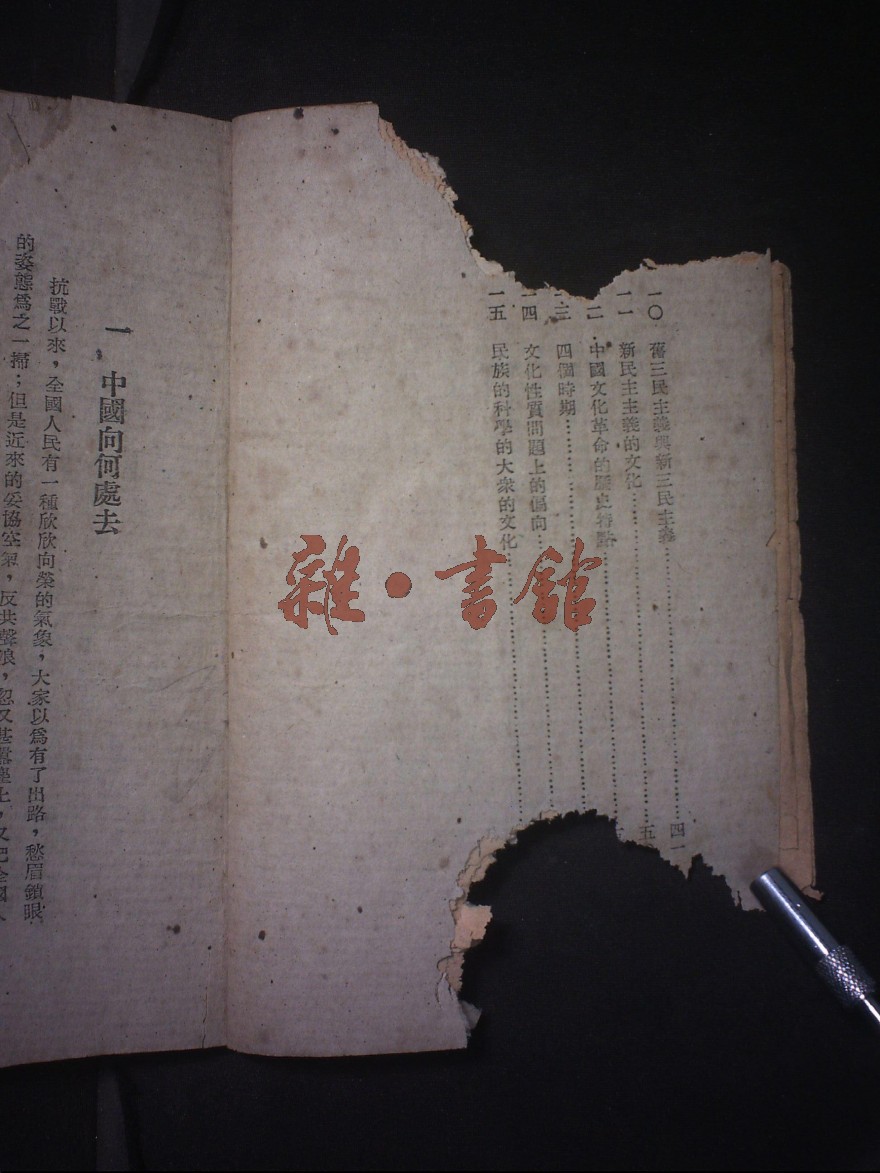 一〇 舊三民主義與新三民主義……四一
一一 新民主主義的文化……五
一二 中國文化革命的歷史特點……
一三 四個時期……
一四 文化性質問題上的偏向……
一五 民族的科學的大衆的文化……
一 中國向何處去
抗戰以來，全國人民有一種欣欣向榮的氣象，大家以爲有了出路，愁眉鎖眼
的姿態爲之一掃；但是近來的妥協空氣，反共聲浪，忽又甚囂塵上，又把全國人
雜·書館